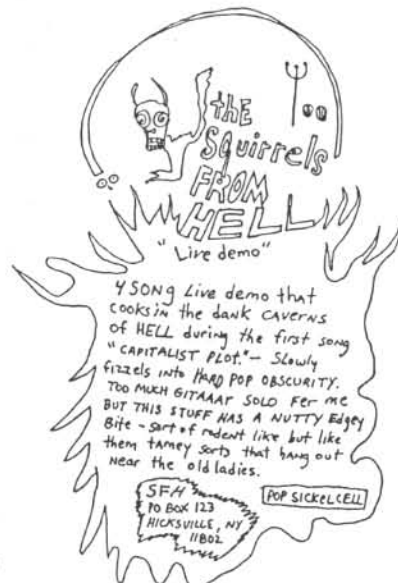 the
Squirrels
FROM
HELL
"Live demo"
4 SONG Live demo that
cooks in the dank caverns
of HELL during the first song
"CAPITALIST PLOT." — Slowly
fizzels into HARD POP OBSCURITY.
TOO MUCH GITAAAT SOLO Fer me
BUT THIS STUFF HAS A NUTTY Edgey
Bite - sort of rodent like but like
them tamey sorts that hang out
near the old ladies.
SFH
PO BOX 123
HICKSVILLE, NY
11802
POP SICKELCELL